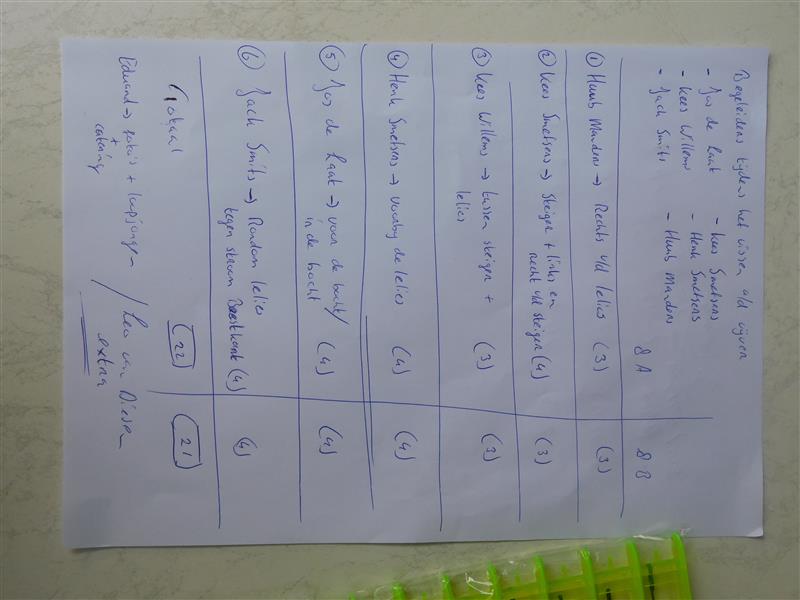 Begeleiders tijdens het vissen a/d vijver
- Jos de Laat - Kees Smetsers
- Kees Willems - Henk Smetsers
- Jack Smits - Huub Mandens
8A 8B
① Huub Mandens → Rechts v/d lelies (3) (3)
② Kees Smetsers → Steiger + links en
recht v/d steiger (4) (3)
③ Kees Willems → tussen steiger + (3) (3)
lelies
④ Henk Smetsers → voorbij de lelies (4) (4)
⑤ Jos de Laat → voor de bocht/ (4) (4)
in de bocht
⑥ Jack Smits → Rondom lelies
tegen stroom (4) (4)
Totaal (22) (21)
Eduard → foto's + loopjongen / Leo van Diesen
+ extra
catering